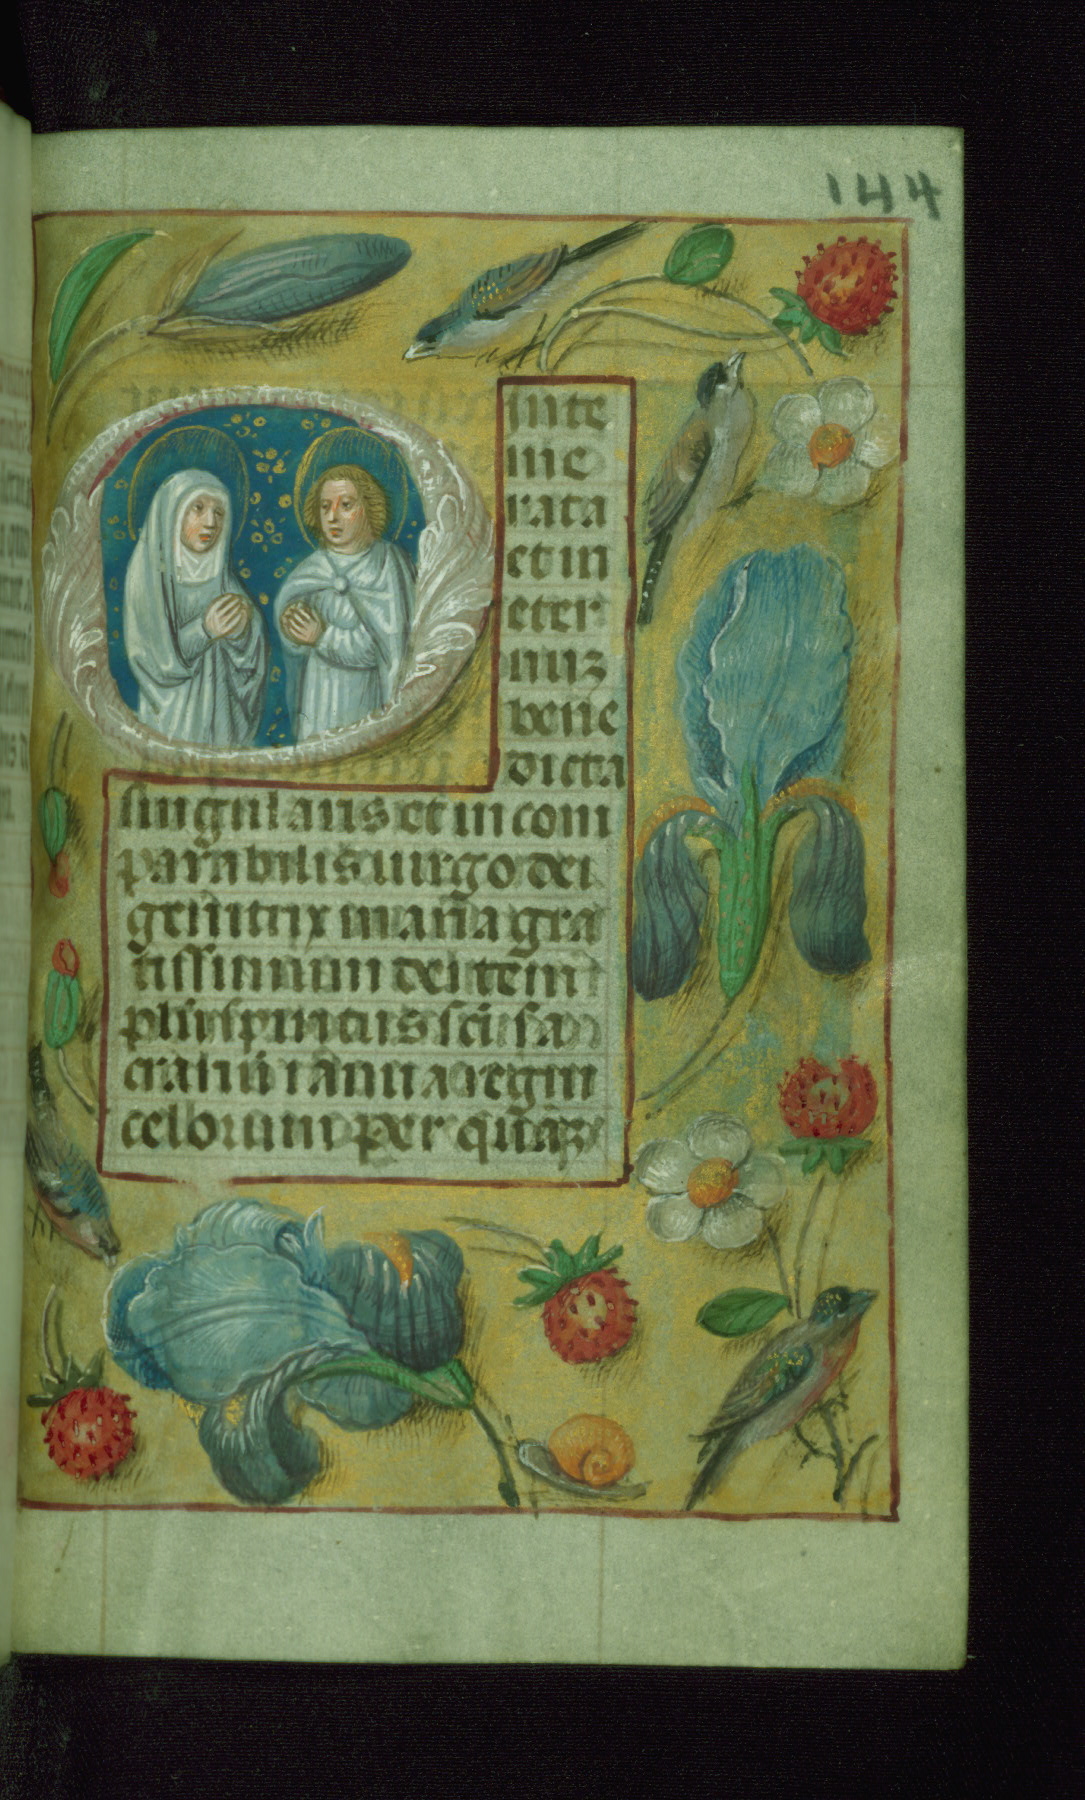 144
inte
me
rata
et in
eter
nuz
bene
dicta
singularis et in com
parabilis virgo dei
genitrix maria gra
tissimum dei tem
plu spiritus sci sa
crariu ianua regni
celorum per quaz